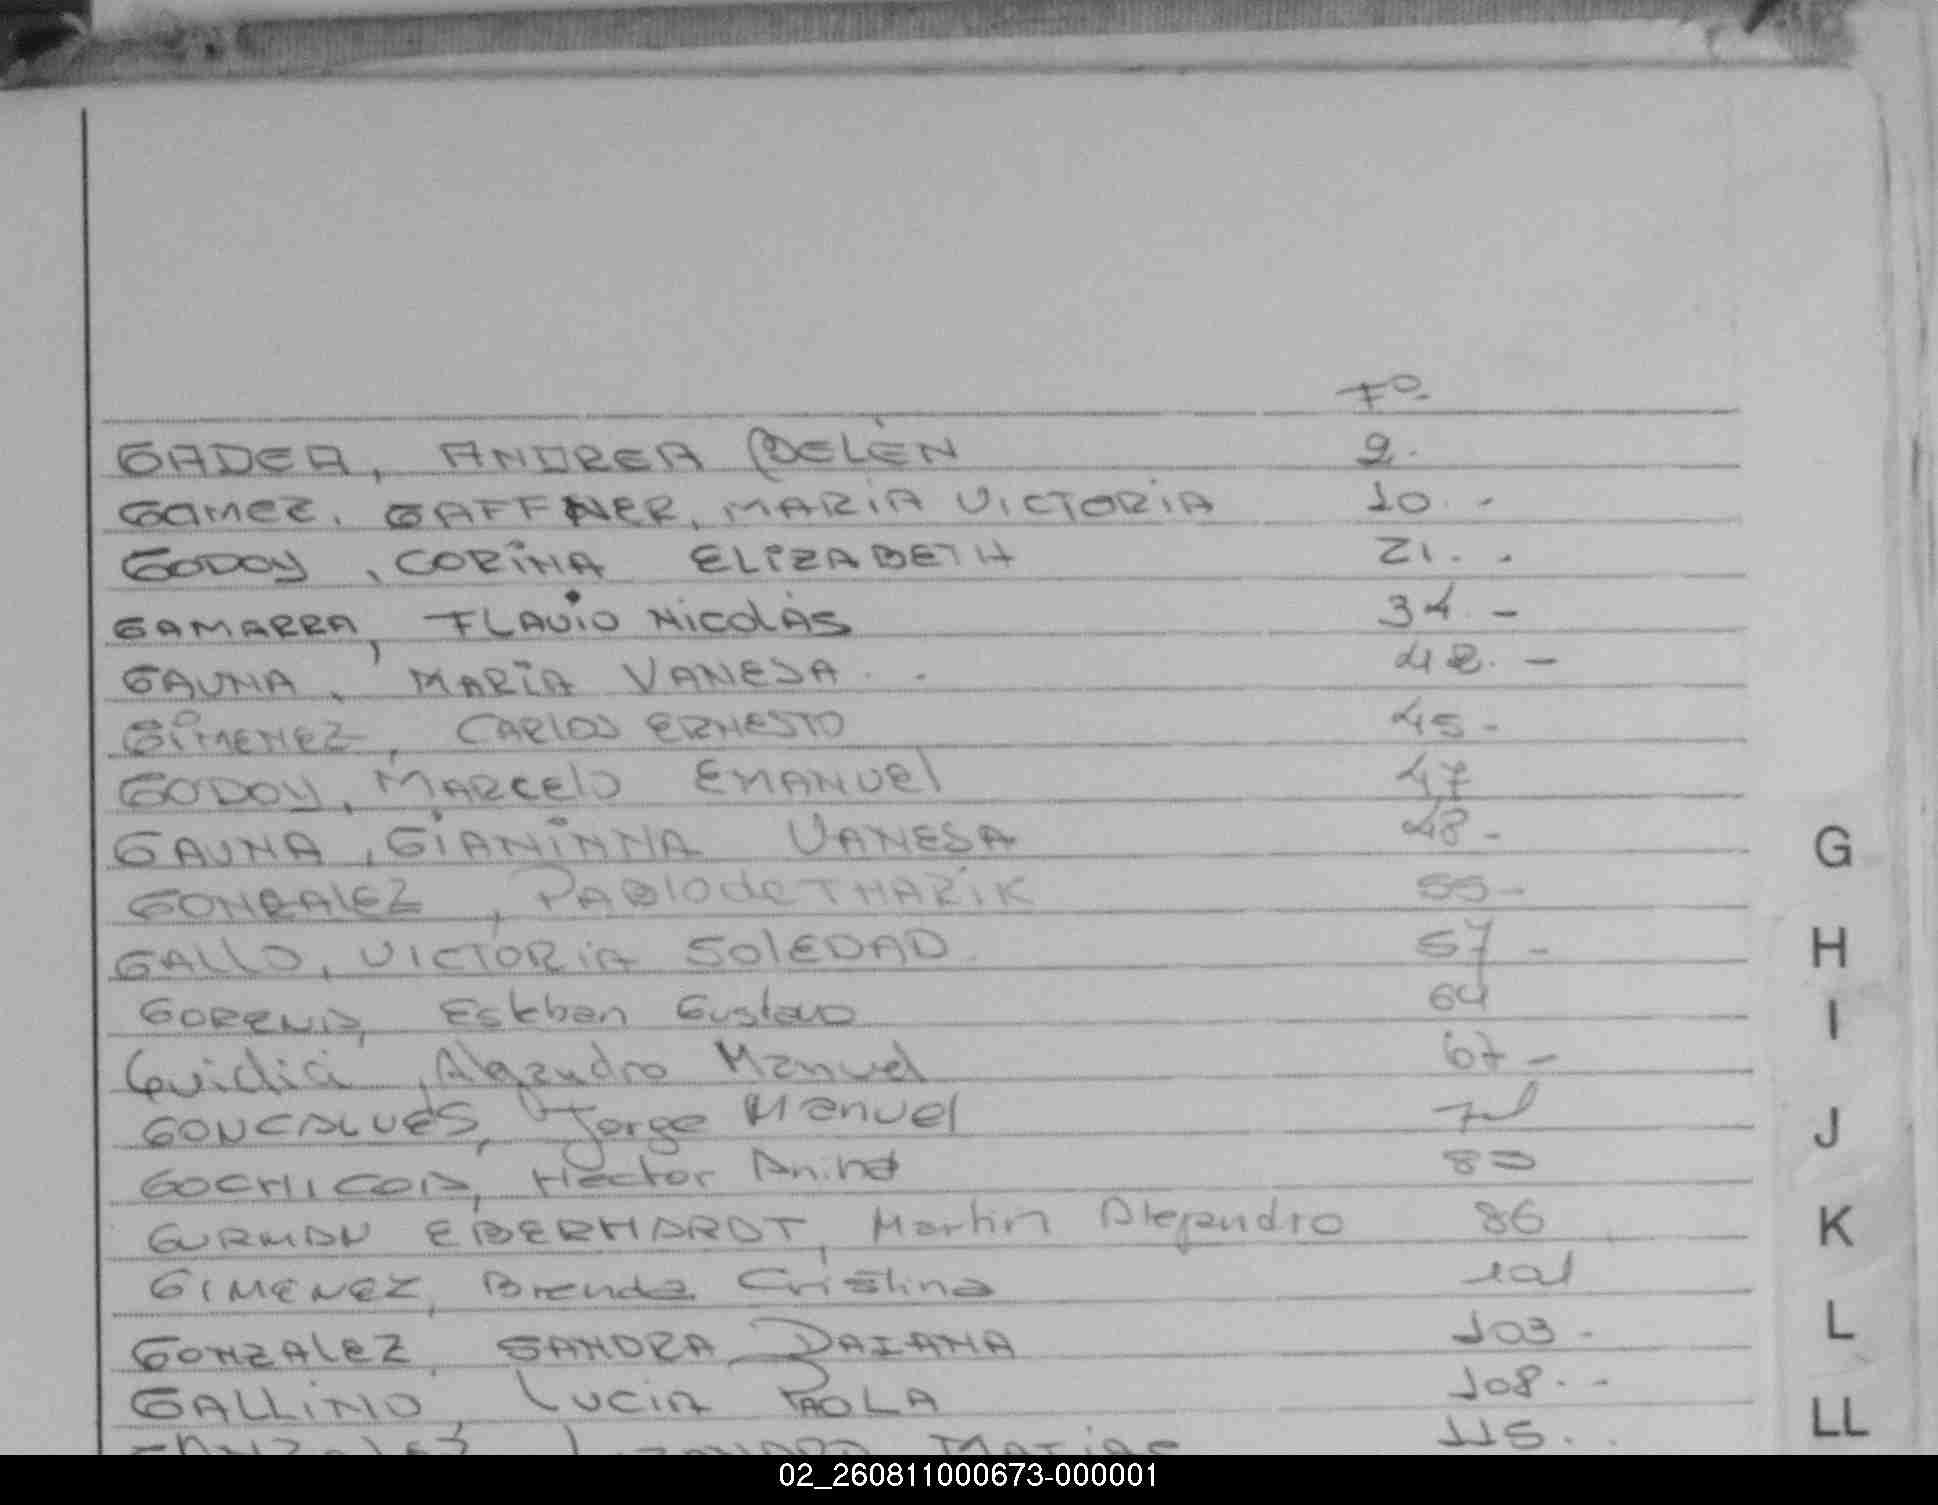 Fº
GADEA, ANDREA BELÉN 9.
GAMEZ. GAFFNER, MARIA VICTORIA 10. -
GODOY, CORINA ELIZABETH 21. .
GAMARRA, FLAVIO NICOLÁS 34. -
GAUNA, MARIA VANESA. . 42. -
GIMENEZ, CARLOS ERNESTO 45 -
GODOY, MARCELO EMANUEL 47
GAUNA, GIANINNA VANESA 48 -
GONZALEZ, PABLO de THARIK 55 -
GALLO, VICTORIA SOLEDAD. 57 -
Esteban Gustavo 64
Guidici, Alejandro Manuel 67 -
GONCALVES, Jorge Manuel
Hector 80
EBERHARDT, Martin Alejandro 86
GIMENEZ, Brenda Cristina 101
GONZALEZ, SANDRA DAIANA 103 -
GALLINO, LUCIA PAOLA 108. -
MATIAS 115. .
G
H
I
J
K
L
LL
02_260811000673-000001